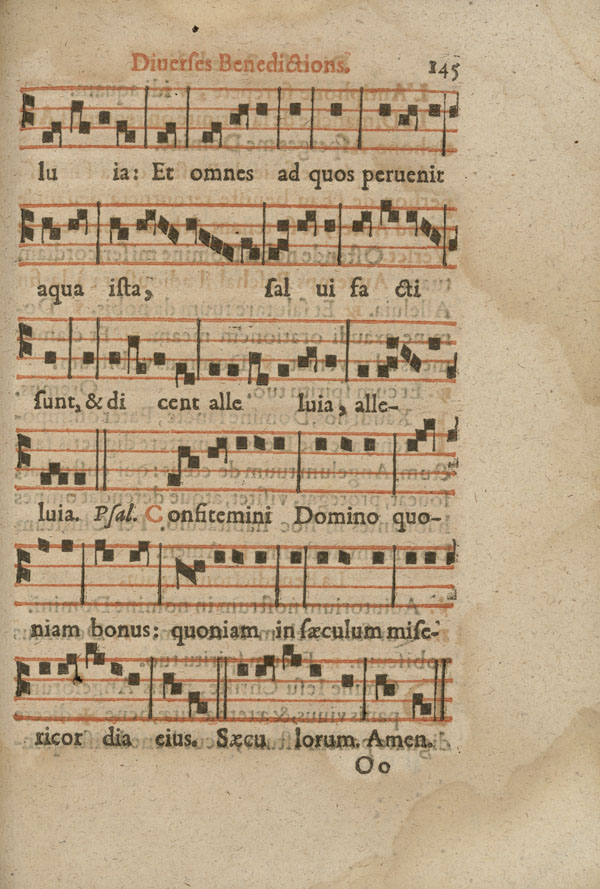 Diuerses Benedictions. 145
lu ia: Et omnes ad quos peruenit
aqua ista, sal ui fa cti
sunt, & di cent alle luia, alle-
luia. Psal. Confitemini Domino quo-
niam bonus: quoniam in sæculum mise-
ricor dia eius. Sæcu lorum. Amen.
Oo